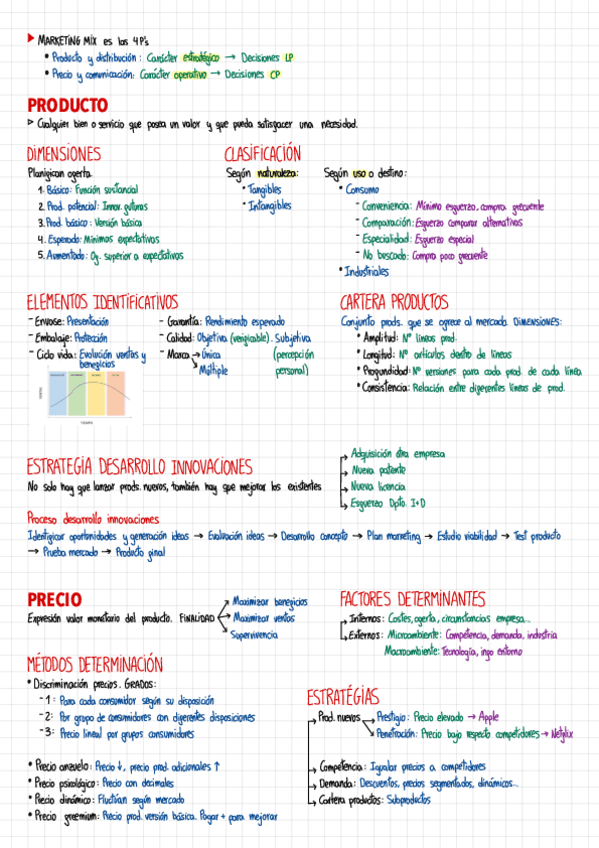 MARKETING MIX es las 4P's
• Producto y distribución: Carácter estratégico → Decisiones LP
• Precio y comunicación: Carácter operativo → Decisiones CP
PRODUCTO
Cualquier bien o servicio que posea un valor y que pueda satisfacer una necesidad.
DIMENSIONES
Planifican oferta
1. Básico: Función sustancial
2. Prod. potencial: Innov. futuras
3. Prod. básico: Versión básica
4. Esperado: Mínimas expectativas
5. Aumentado: Of. superior a expectativas
CLASIFICACIÓN
Según naturaleza:
• Tangibles
• Intangibles
Según uso o destino:
• Consumo
- Conveniencia: Mínimo esfuerzo, compra frecuente
- Comparación: Esfuerzo comparar alternativas
- Especialidad: Esfuerzo especial
- No buscado: Compra poco frecuente
• Industriales
ELEMENTOS IDENTIFICATIVOS
- Envase: Presentación
- Embalaje: Protección
- Ciclo vida: Evolución ventas y
beneficios
- Garantía: Rendimiento esperado
- Calidad: Objetiva (verificable). Subjetiva
(percepción
personal)
- Marca → Única
Múltiple
CARTERA PRODUCTOS
Conjunto prods. que se ofrece al mercado. DIMENSIONES:
• Amplitud: Nº líneas prod.
• Longitud: Nº artículos dentro de líneas
• Profundidad: Nº versiones para cada prod. de cada línea
• Consistencia: Relación entre diferentes líneas de prod.
ESTRATEGIA DESARROLLO INNOVACIONES
No solo hay que lanzar prods. nuevos, también hay que mejorar los existentes
Adquisición otra empresa
Nueva patente
Nueva licencia
Esfuerzo Dpto. I+D
Proceso desarrollo innovaciones
Identificar oportunidades y generación ideas → Evaluación ideas → Desarrollo concepto → Plan marketing → Estudio viabilidad → Test producto
→ Prueba mercado → Producto final
PRECIO
Expresión valor monetario del producto. FINALIDAD
Maximizar beneficios
Maximizar ventas
Supervivencia
FACTORES DETERMINANTES
Internos: Costes, oferta, circunstancias empresa...
Externos: Microambiente: Competencia, demanda, industria
Macroambiente: Tecnología, info entorno
MÉTODOS DETERMINACIÓN
• Discriminación precios. GRADOS:
- 1: Para cada consumidor según su disposición
- 2: Por grupo de consumidores con diferentes disposiciones
- 3: Precio lineal por grupos consumidores
• Precio anzuelo: Precio ↓, precio prod. adicionales ↑
• Precio psicológico: Precio con decimales
• Precio dinámico: Fluctúan según mercado
• Precio freemium: Precio prod. versión básica. Pagar + para mejorar
ESTRATÉGIAS
Prod. nuevos
Prestigio: Precio elevado → Apple
Penetración: Precio bajo respecto competidores → Netflix
Competencia: Igualar precios a competidores
Demanda: Descuentos, precios segmentados, dinámicos...
Cartera productos: Subproductos